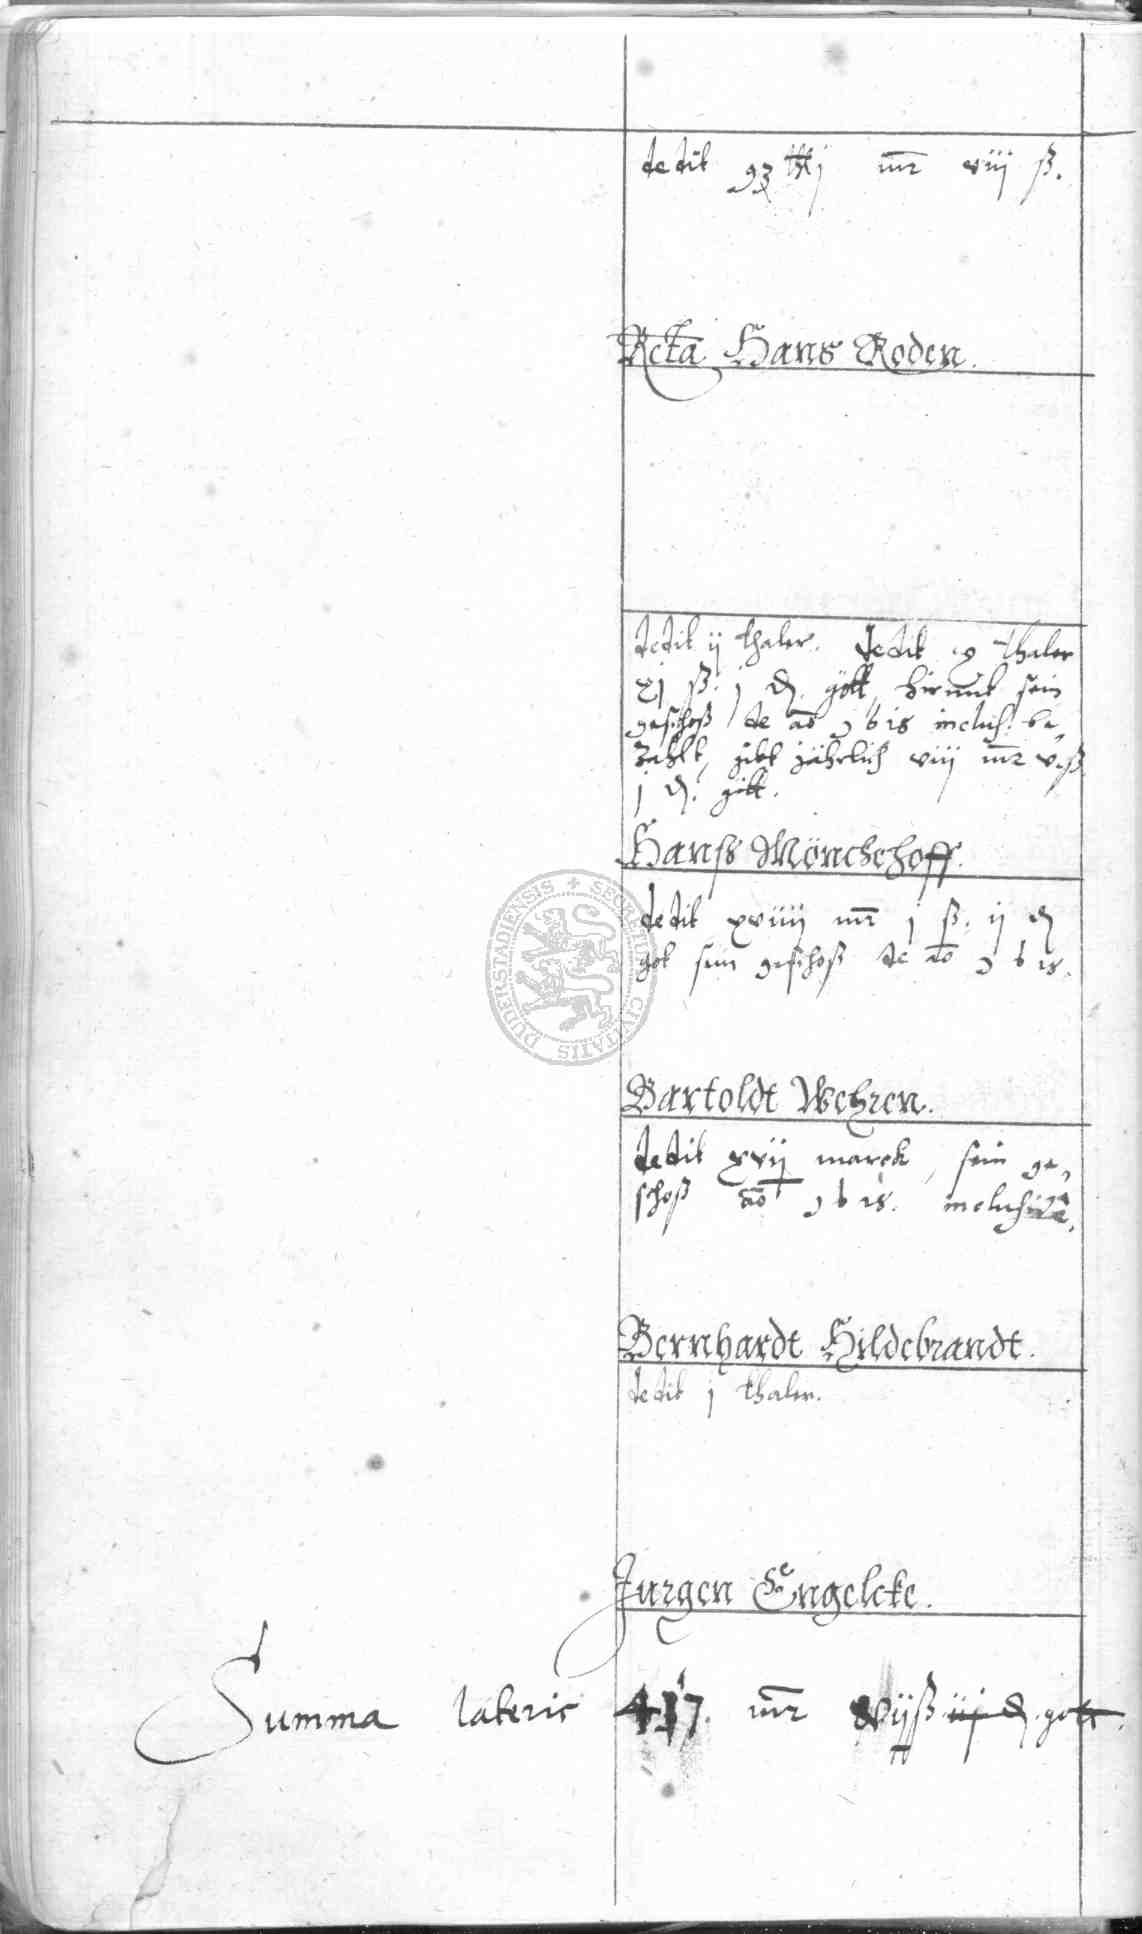 dedit mr viij ß.
Rcta Hans Roden.
dedit ij thaler. dedit x thaler
xj ß. j d. gott, hirmit sein
geschoß de ao 1618 inclus. be,
zahlt, gibt jährlich viij mr v ß
j d. gott.
Hanß Mönchehoff.
dedit xviiij mr j ß. ij d
got sein geschoß de ao 1618.
Bartoldt Wehren.
dedit xvij marck, sein ge,
schoß ao 1618. inclusive.
Bernhardt Hildebrandt.
dedit j thaler.
Jurgen Engelcke.
Summa lateris mr ß d. gott.
SECRETUM CIVITATIS DUDERSTADIENSIS